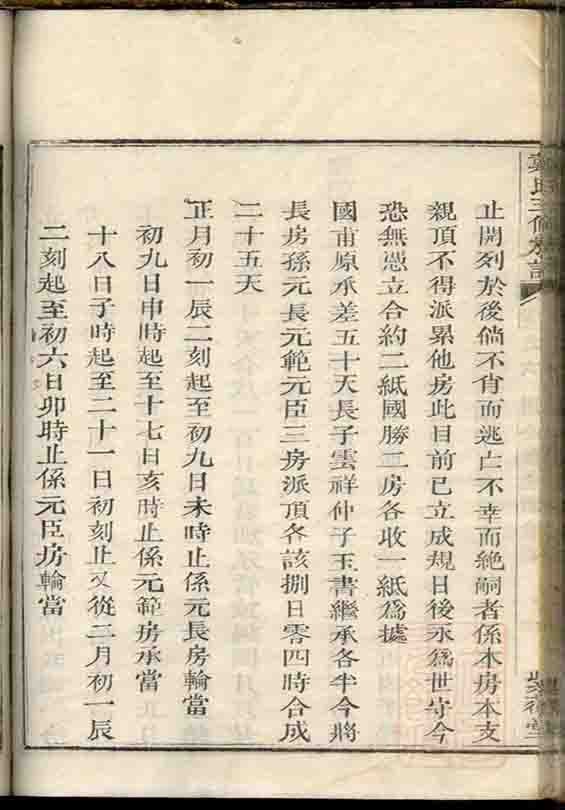 止開列於後倘不肖而逃亡不幸而絶嗣者係本房本支
親頂不得派累他房此目前已立成規日後永爲世守今
恐無憑立合約二紙國勝二房各收一紙爲據
國甫原承差五十天長子雲祥仲子玉書繼承各半今將
長房孫元長元範元臣三房派頂各該捌日零四時合成
二十五天
正月初一辰二刻起至初九日未時止係元長房輪當
初九日申時起至十七日亥時止係元範房承當
十八日子時起至二十一日初刻止又從二月初一辰
二刻起至初六日卯時止係元臣房輪當